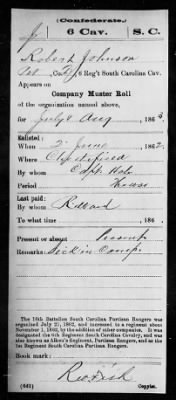 (Confederate.)
J 6 Cav. S. C.
Robert Johnson
Co. J, 6 Reg't South Carolina Cav.
Appears on
Company Muster Roll
of the organization named above,
for July & Aug, 1863.
Enlisted:
When 2 June, 1862.
Where
By whom Capt.
Period
Last paid:
By whom
To what time , 186 .
Present or absent Present
Remarks: Sick in Camp
The 16th Battalion South Carolina Partisan Rangers was
organized July 21, 1862, and increased to a regiment about
November 1, 1862, by the addition of other companies. It was
designated the 6th Regiment South Carolina Cavalry, and was
also known as Aiken's Regiment, Partisan Rangers, and as the
1st Regiment South Carolina Partisan Rangers.
Book mark:
(642) Copyist.